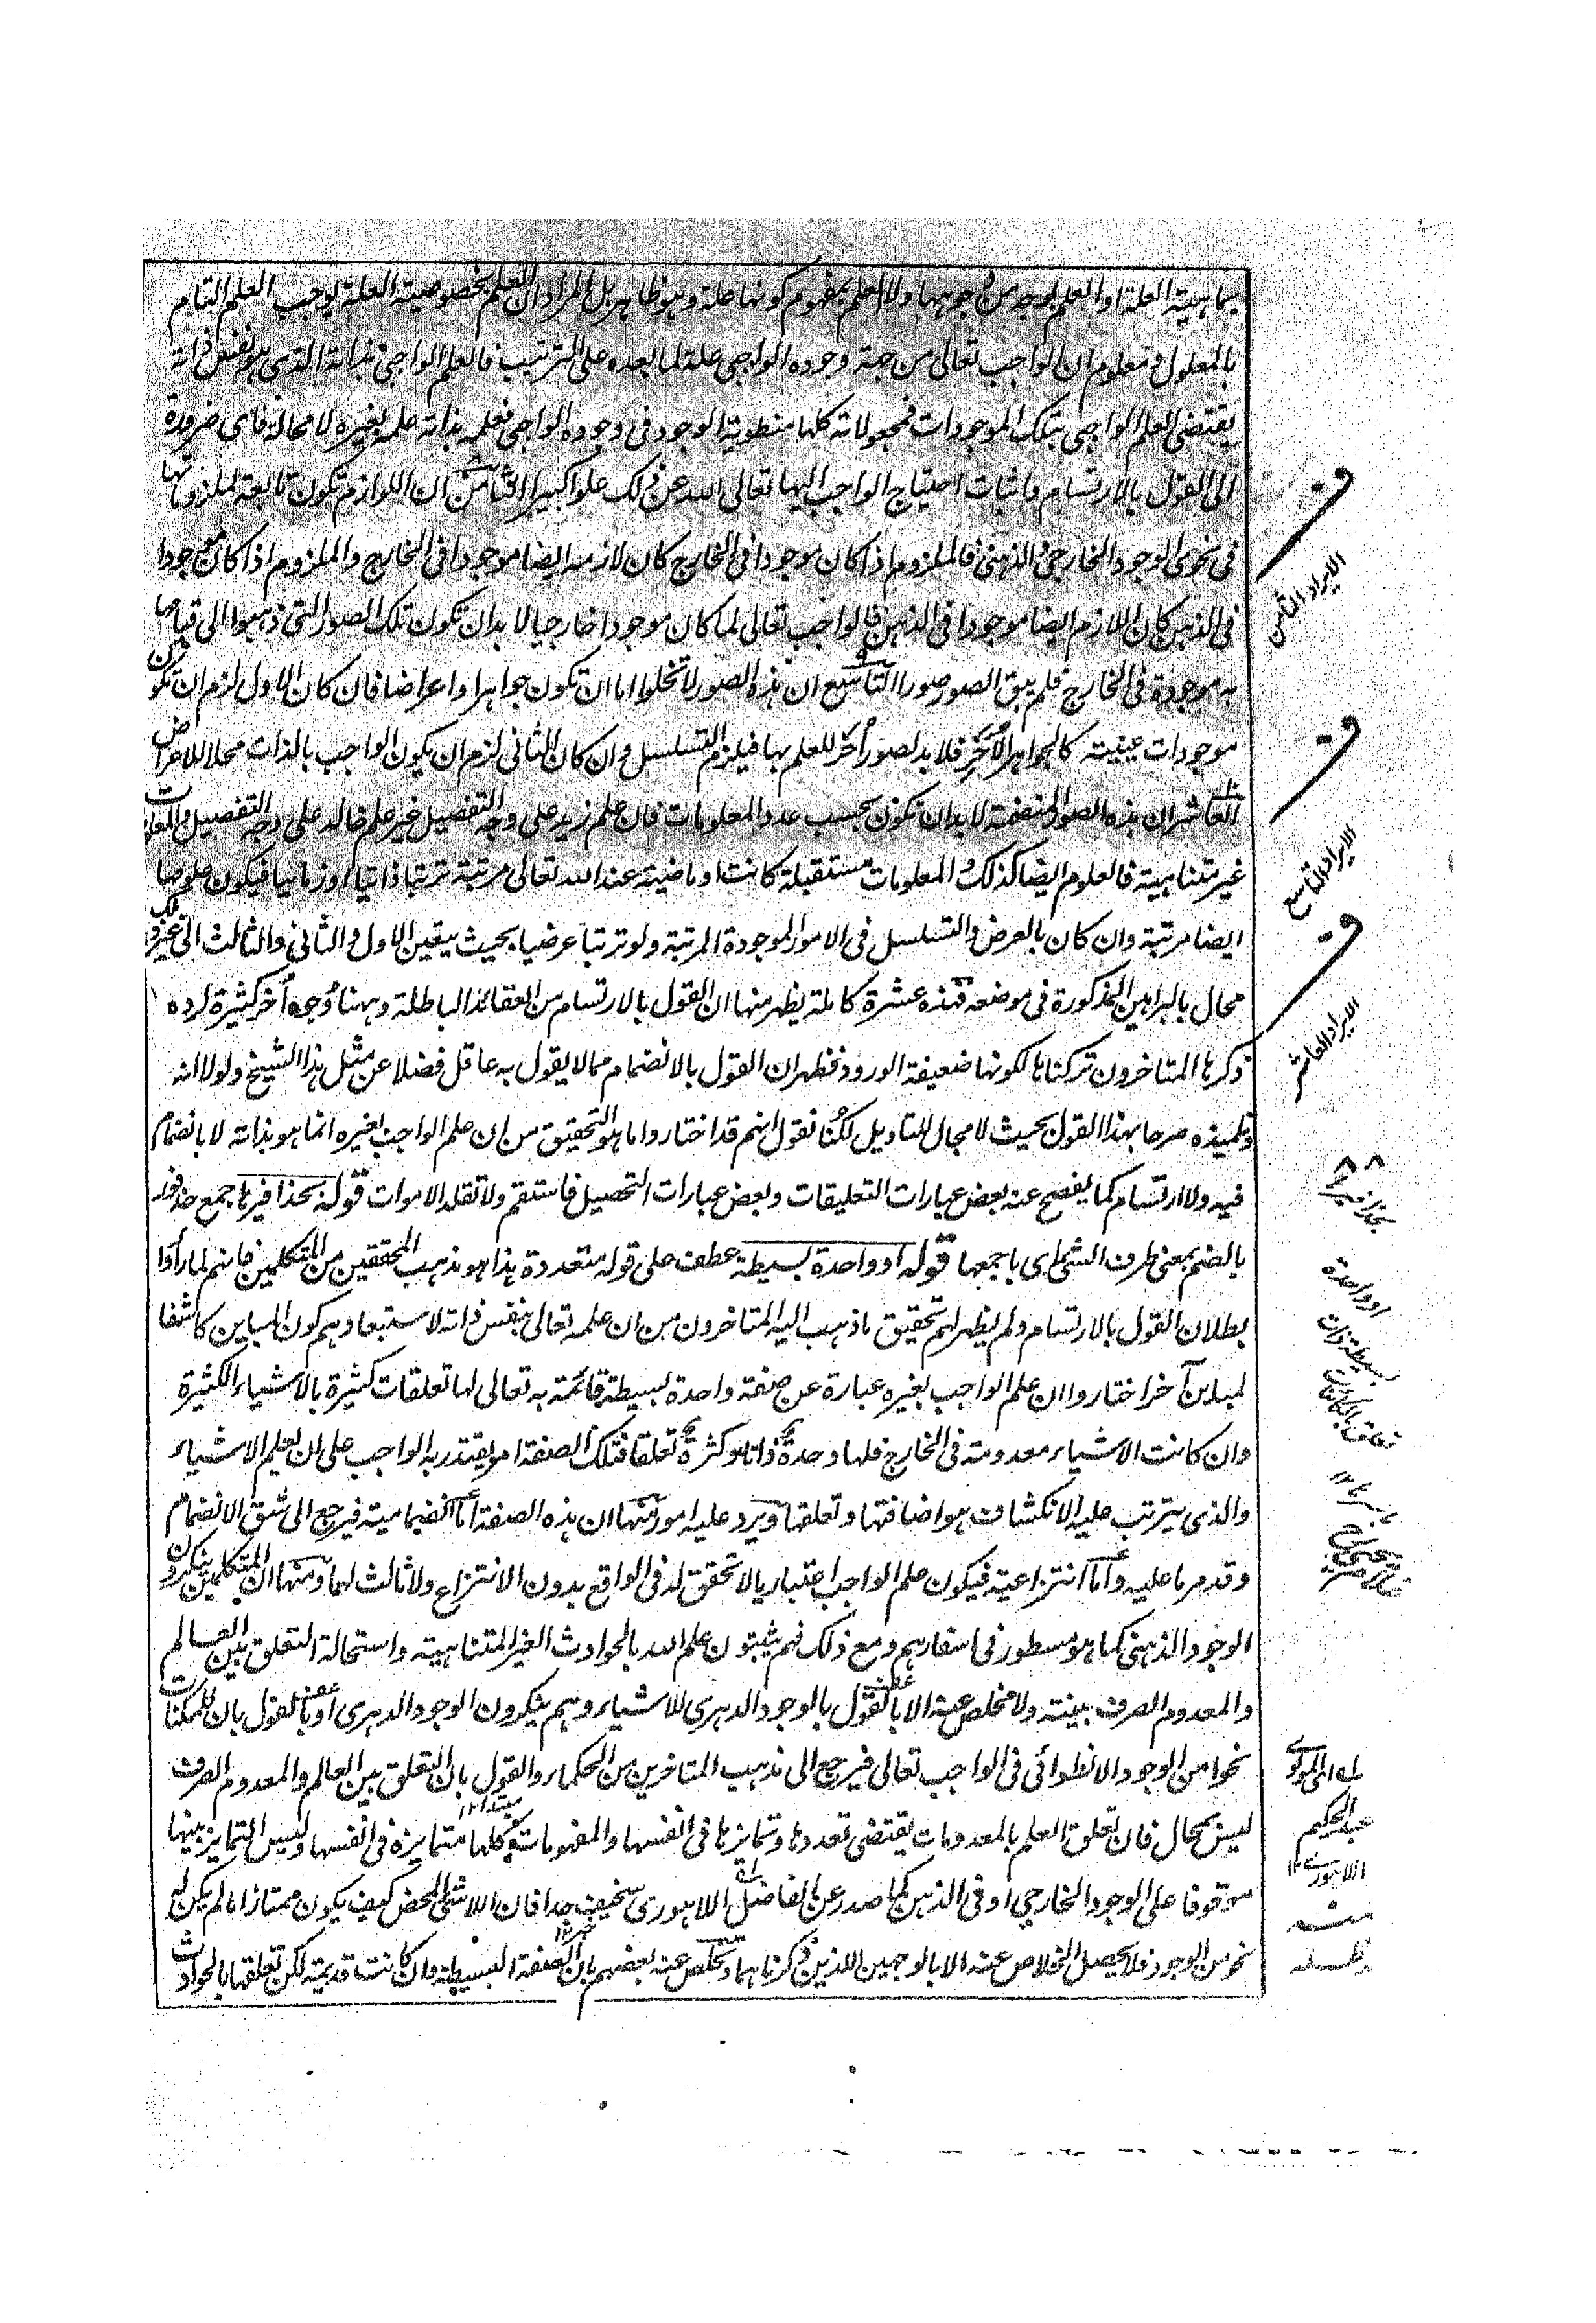 بماهية العلة او العلم بوجه من وجوهها ولا العلم بمفهوم كونها علة وهو ظاهر بل المراد ان العلم بخصوصية العلة يوجب العلم التام
بالمعلول ومعلوم ان الواجب تعالى من جهة وجوده الواجبي علة لما بعده على الترتيب فالعلم الواجبي بذاته الذي هو نفس ذاته
يقتضى العلم الواجبي بتلك الموجودات فمجعولاته كلها منطوية الوجود فى وجوده الواجبي فعلمه بذاته علمه بغيره لا محالة فاى ضرورة
الى القول بالارتسام واثبات احتياج الواجب اليها تعالى الله عن ذلك علوا كبيرا الثامن ان اللوازم تكون تابعة لملزوماتها
فى نحوى الوجود الخارجي والذهنى فالملزوم اذا كان موجودا فى الخارج كان لازمه ايضا موجودا فى الخارج والملزوم اذا كان موجودا
فى الذهن كان اللازم ايضا موجودا فى الذهن فالواجب تعالى لما كان موجودا خارجيا لا بد ان تكون تلك الصور التى ذهبوا الى قيامها
به موجودة فى الخارج فلم يبق الصور صورا التاسع ان هذه الصور لا تخلوا اما ان تكون جواهر او اعراضا فان كان الاول لزم ان تكون
موجودات عينية كالجواهر الأخر فلا بد لصور أخر للعلم بها فيلزم التسلسل وان كان الثانى لزم ان يكون الواجب بالذات محلا للاعراض
العاشر ان هذه الصور المنضمة لا بد ان تكون بحسب عدد المعلومات فان علم زيد على وجه التفصيل غير علم خالد على وجه التفصيل والمعلومات
غير متناهية فالعلوم ايضا كذلك والمعلومات مستقبلة كانت او ماضية عند الله تعالى مرتبة ترتبا ذاتيا او زمانيا فيكون علومها
ايضا مرتبة وان كان بالعرض والتسلسل فى الامور الموجودة المرتبة ولو ترتبا عرضيا بحيث يتعين الاول والثانى والثالث الى غير ذلك
محال بالبراهين المذكورة فى موضعه فهذه عشرة كاملة يظهر منها ان القول بالارتسام من العقائد الباطلة وههنا وجوه أخر كثيرة لرده
ذكرها المتاخرون تركناها لكونها ضعيفة الورود فظهر ان القول بالانضمام مما لا يقول به عاقل فضلا عن مثل هذا الشيخ ولولا انه
وتلميذه صرحا بهذا القول بحيث لا مجال للتاويل لكُنا نقول انهم قد اختاروا ما هو التحقيق من ان علم الواجب بغيره انما هو بذاته لا بانضمام
فيه ولا ارتسام كما يفصح عنه بعض عبارات التعليقات وبعض عبارات التحصيل فاستقم ولا تقلد الاموات قوله بحذافيرها جمع حذفور
بالضم بمعنى طرف الشئ اى باجمعها قوله او واحدة بسيطة عطف على قوله متعددة هذا هو مذهب المحققين من المتكلمين فانهم لما رأوا
بطلان القول بالارتسام ولم يظهر لهم تحقيق ما ذهب اليه المتاخرون من ان علمه تعالى بنفس ذاته لاستبعادهم كون المباين كاشفا
لمباين آخر اختاروا ان علم الواجب بغيره عبارة عن صفة واحدة بسيطة قائمة به تعالى لها تعلقات كثيرة بالاشياء الكثيرة
وان كانت الاشياء معدومة فى الخارج فلها وحدة ذاتا وكثرة تعلقا فتلك الصفة امر يقتدر به الواجب على ان يعلم الاشياء
والذى يترتب عليه الانكشاف هو اضافتها وتعلقها ويرد عليه امور منها ان هذه الصفة اما انضمامية فيرجع الى شق الانضمام
وقد مر ما عليه واما انتزاعية فيكون علم الواجب اعتباريا لا تحقق له فى الواقع بدون الانتزاع ولا ثالث لهما ومنها ان المتكلمين ينكرون
الوجود الذهنى كما هو مسطور فى اسفارهم ومع ذلك فهم يثبتون علم الله بالحوادث الغير المتناهية واستحالة التعلق بين العالم
والمعدوم الصرف بينة ولا مخلص عنه الا بالقول بالوجود الدهرى للاشياء وهم ينكرون الوجود الدهرى أو بالقول بان للممكنات
نحوا من الوجود الانطوائى فى الواجب تعالى فيرجع الى مذهب المتاخرين من الحكماء والقول بان التعلق بين العالم والمعدوم الصرف
ليس بمحال فان تعلق العلم بالمعدومات يقتضى تعددها وتمايزها فى انفسها والمفهومات كلها متمايزة فى انفسها وليس التمايز بينها
موقوفا على الوجود الخارجي او فى الذهن كما صدر عن الفاضل اللاهورى سخيف جدا فان اللاشئ المحض كيف يكون ممتازا ما لم يكن له
نحو من الوجود فلا يحصل الخلاص عنه الا بالوجهين اللذين ذكرناهما وتخلص عنه بعضهم بان الصفة البسيطة وان كانت قديمة لكن تعلقها بالحوادث
الايراد الثامن
الايراد التاسع
الايراد العاشر
٨٨
بحذافيرها
او واحدة
بسيطة ذات
اى المولوى
عبد الحكيم
اللاهورى ١٢
منه
مدظله